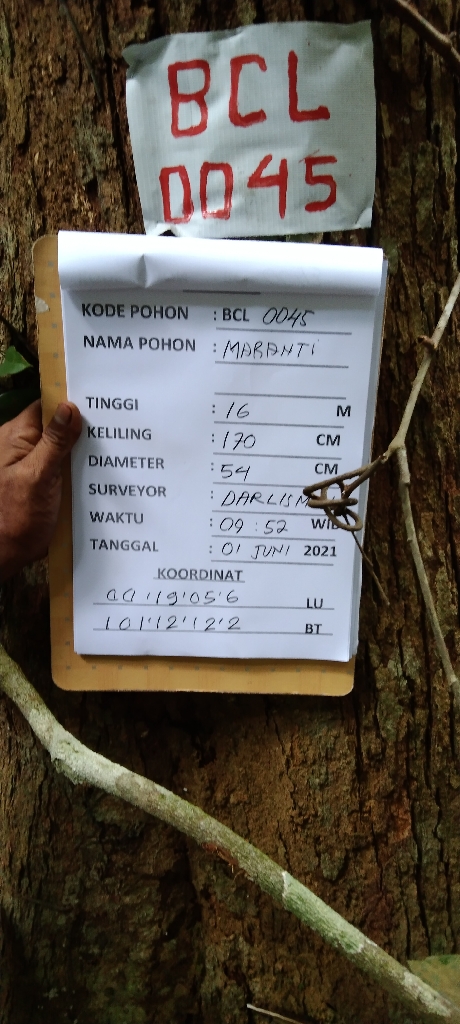 BCL
0045
KODE POHON : BCL 0045
NAMA POHON : MARANTI
TINGGI : 16 M
KELILING : 170 CM
DIAMETER : 54 CM
SURVEYOR :
WAKTU : 09 : 52 WIB
TANGGAL : 01 JUNI 2021
KOORDINAT
00'19'05'6 LU
101'12'12'2 BT